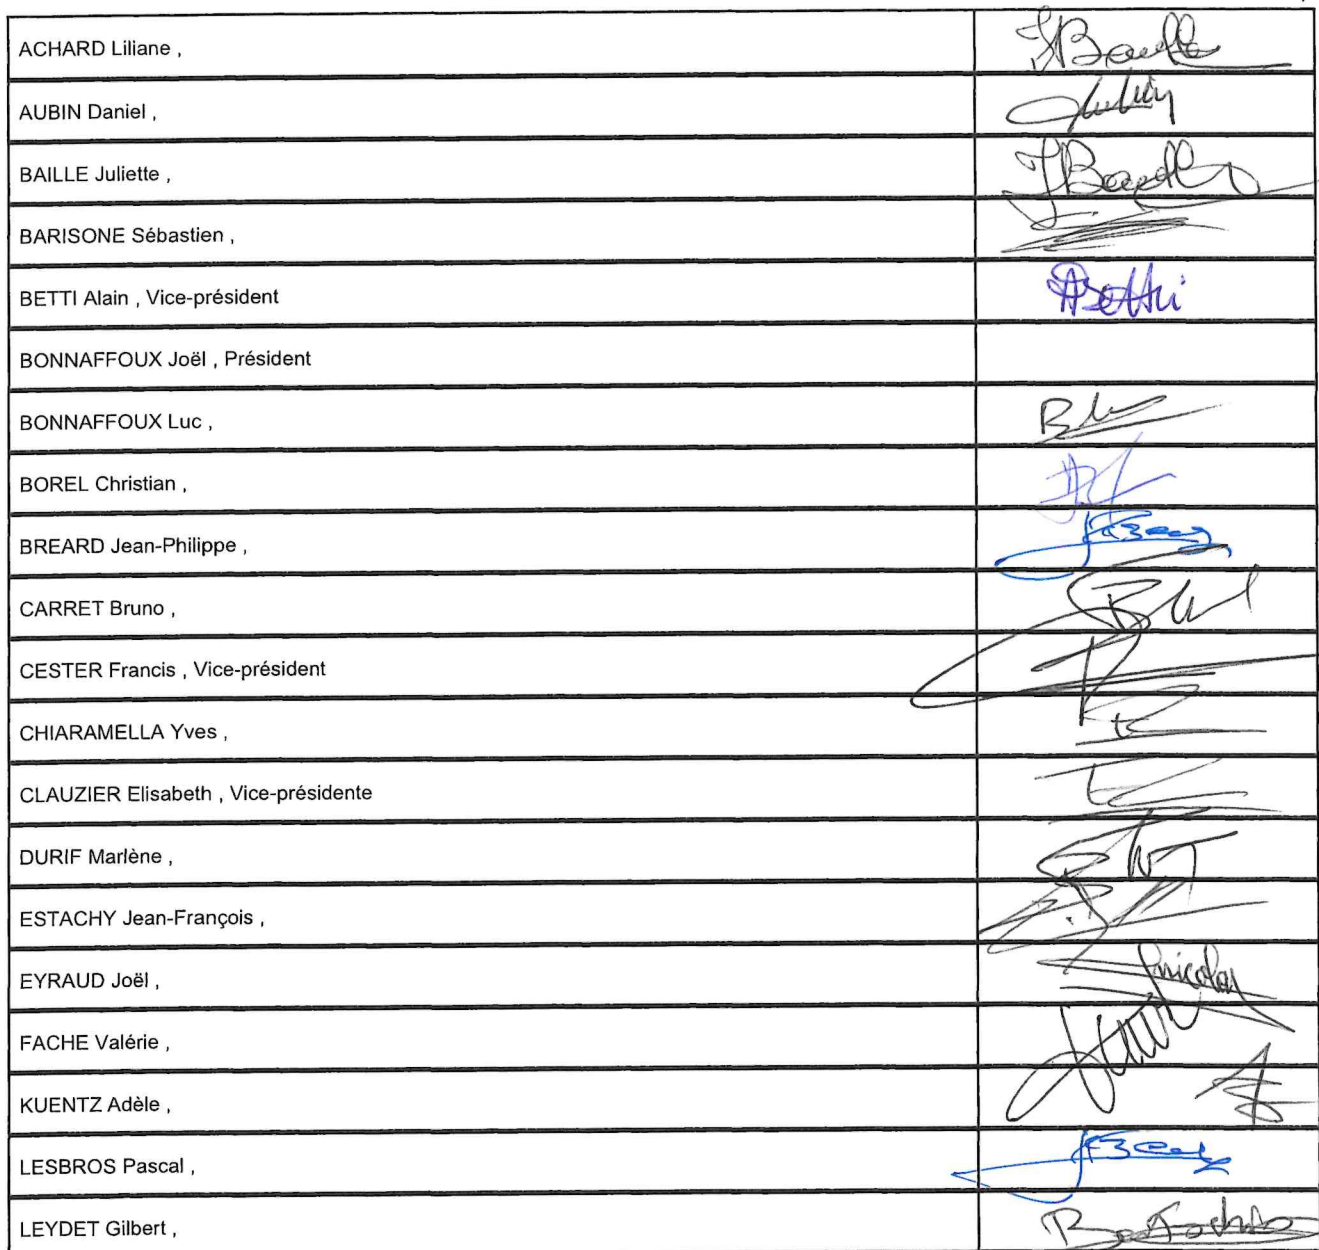 ACHARD Liliane ,
JBaille
AUBIN Daniel ,
Aubin
BAILLE Juliette ,
JBaille
BARISONE Sébastien ,
BETTI Alain , Vice-président
ABetti
BONNAFFOUX Joël , Président
BONNAFFOUX Luc ,
BOREL Christian ,
BREARD Jean-Philippe ,
CARRET Bruno ,
CESTER Francis , Vice-président
CHIARAMELLA Yves ,
CLAUZIER Elisabeth , Vice-présidente
DURIF Marlène ,
ESTACHY Jean-François ,
EYRAUD Joël ,
nicolas
FACHE Valérie ,
KUENTZ Adèle ,
LESBROS Pascal ,
LEYDET Gilbert ,